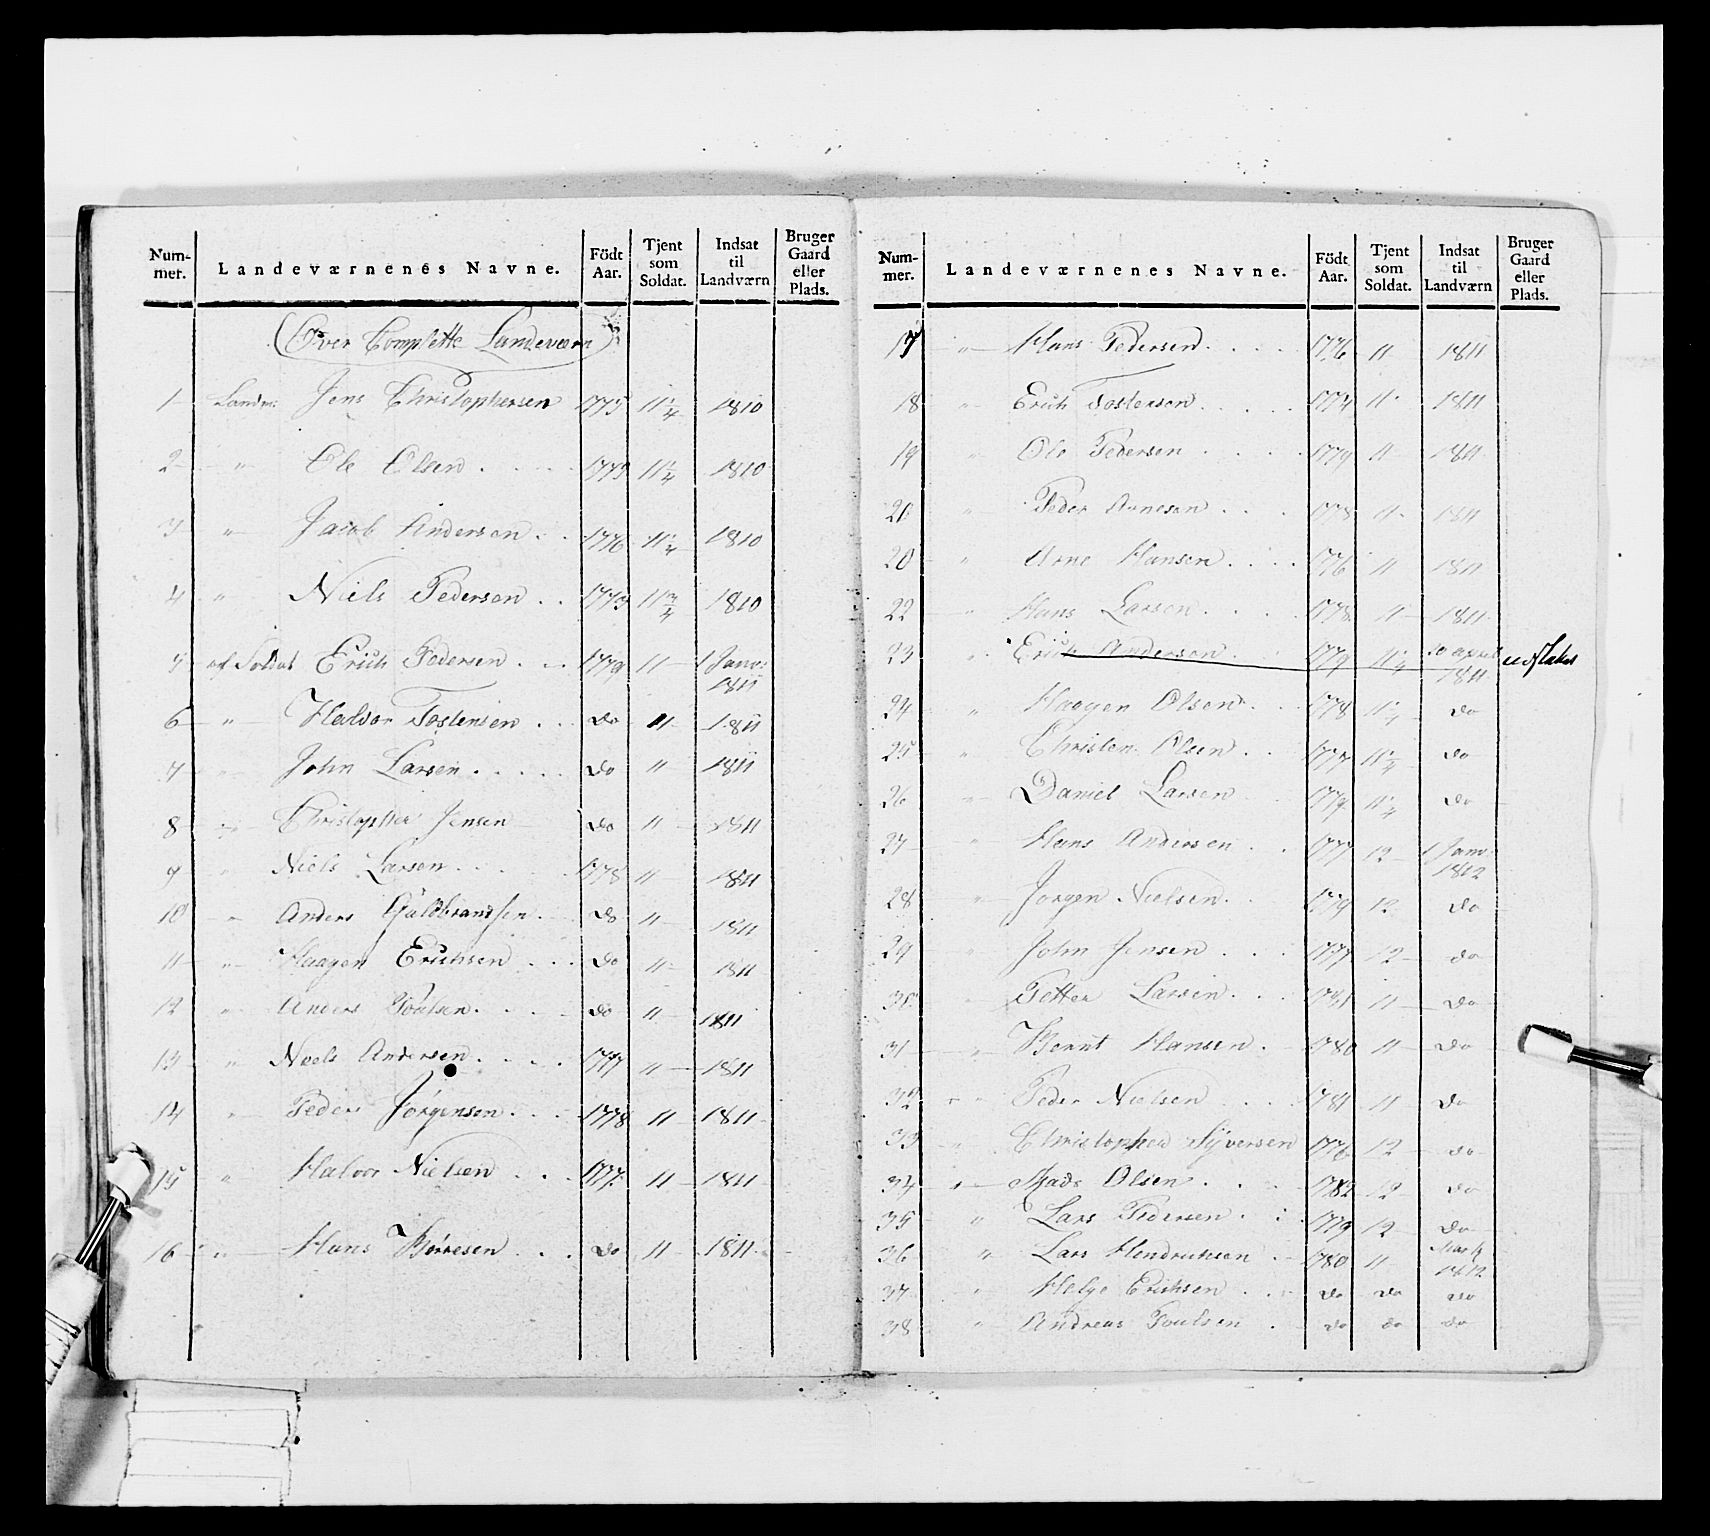 Num-mer. Landeværnenes Navne. Födt Aar. Tjent som Soldat. Indsat til Landværn Bruger Gaard eller Plads.
(Over Complette Landeværn)
1 Landv: Jens Christophersen 1775 11 1/4 1810
2 " Ole Olsen 1775 11 1/4 1810
3 " Jacob Andersen 1776 11 1/4 1810
4 " Niels Pedersen 1775 11 3/4 1810
5 af Soldat Erich Pedersen 1779 11 1 Janv: 1811
6 " Halvor Tostensen do 11 1811
7 " John Larsen do 11 1811
8 " Christopher Jensen do 11 1811
9 " Niels Larsen 1778 11 1811
10 " Anders Guldbrandsen do 11 1811
11 " Haagen Erichsen do 11 1811
12 " Anders Poulsen do 11 1811
13 " Niels Andersen 1777 11 1811
14 " Peder Jörgensen 1778 11 1811
15 " Halvor Nielsen 1777 11 1811
16 " Hans Börresen do 11 1811
Num-mer. Landeværnenes Navne. Födt Aar. Tjent som Soldat. Indsat til Landværn Bruger Gaard eller Plads.
17 " Hans Pedersen 1776 11 1811
18 " Erich Tostensen 1774 11 1811
19 " Ole Pedersen 1779 11 1811
20 " Peder Arnesen 1778 11 1811
20 " Arne Hansen 1776 11 1811
22 " Hans Larsen 1778 11 1811
23 " Erich Andersen 1779 11 1/4 april 1811
24 " Haagen Olsen 1778 11 1/4 do
25 " Christen Olsen 1777 11 1/4 do
26 " Daniel Larsen 1779 11 1/4 do
27 " Hans Andersen 1777 12 1 Janv: 1812
28 " Jörgen Nielsen 1779 12 do
29 " John Jensen 1777 12 do
30 " Petter Larsen 1781 11 do
31 " Bernt Hansen 1780 11 do
32 " Peder Nielsen 1781 11 do
33 " Christopher Syversen 1776 12 do
34 " Mads Olsen 1782 12 do
35 " Lars Pedersen 1779 12 do
36 " Lars Hendrichsen 1780 11 1812
37 " Helge Erichsen do do do
38 " Andreas Poulsen do do do